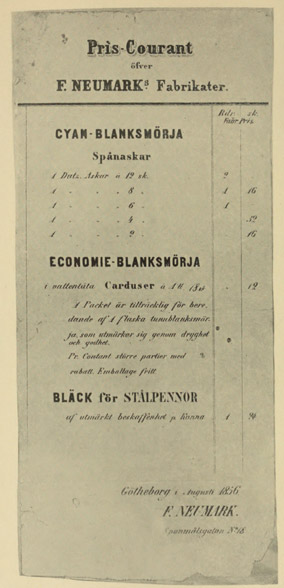 Pris-Courant
öfver
F. NEUMARKS Fabrikater.
Rdr sk.
Fabr. Pris.
CYAN-BLANKSMÖRJA
Spånaskar
1 Dutz. Askar à 12 sk. 2
1 - - 8 - 1 16
1 - - 6 - 1
1 - - 4 - 32
1 - - 2 - 16
ECONOMIE-BLANKSMÖRJA
i vattentäta Carduser à 1 ℔ - 12
1 Packet är tillräcklig för bere-
dande af 1 flaska tunnblanksmör-
ja, som utmärker sig genom dryghet
och godhet.
Pr. Contant större partier med
rabatt. Emballage fritt.
BLÄCK för STÅLPENNOR
af utmärkt beskaffenhet p. Kanna 1 24
Götheborg i Augusti 1856
F. NEUMARK.